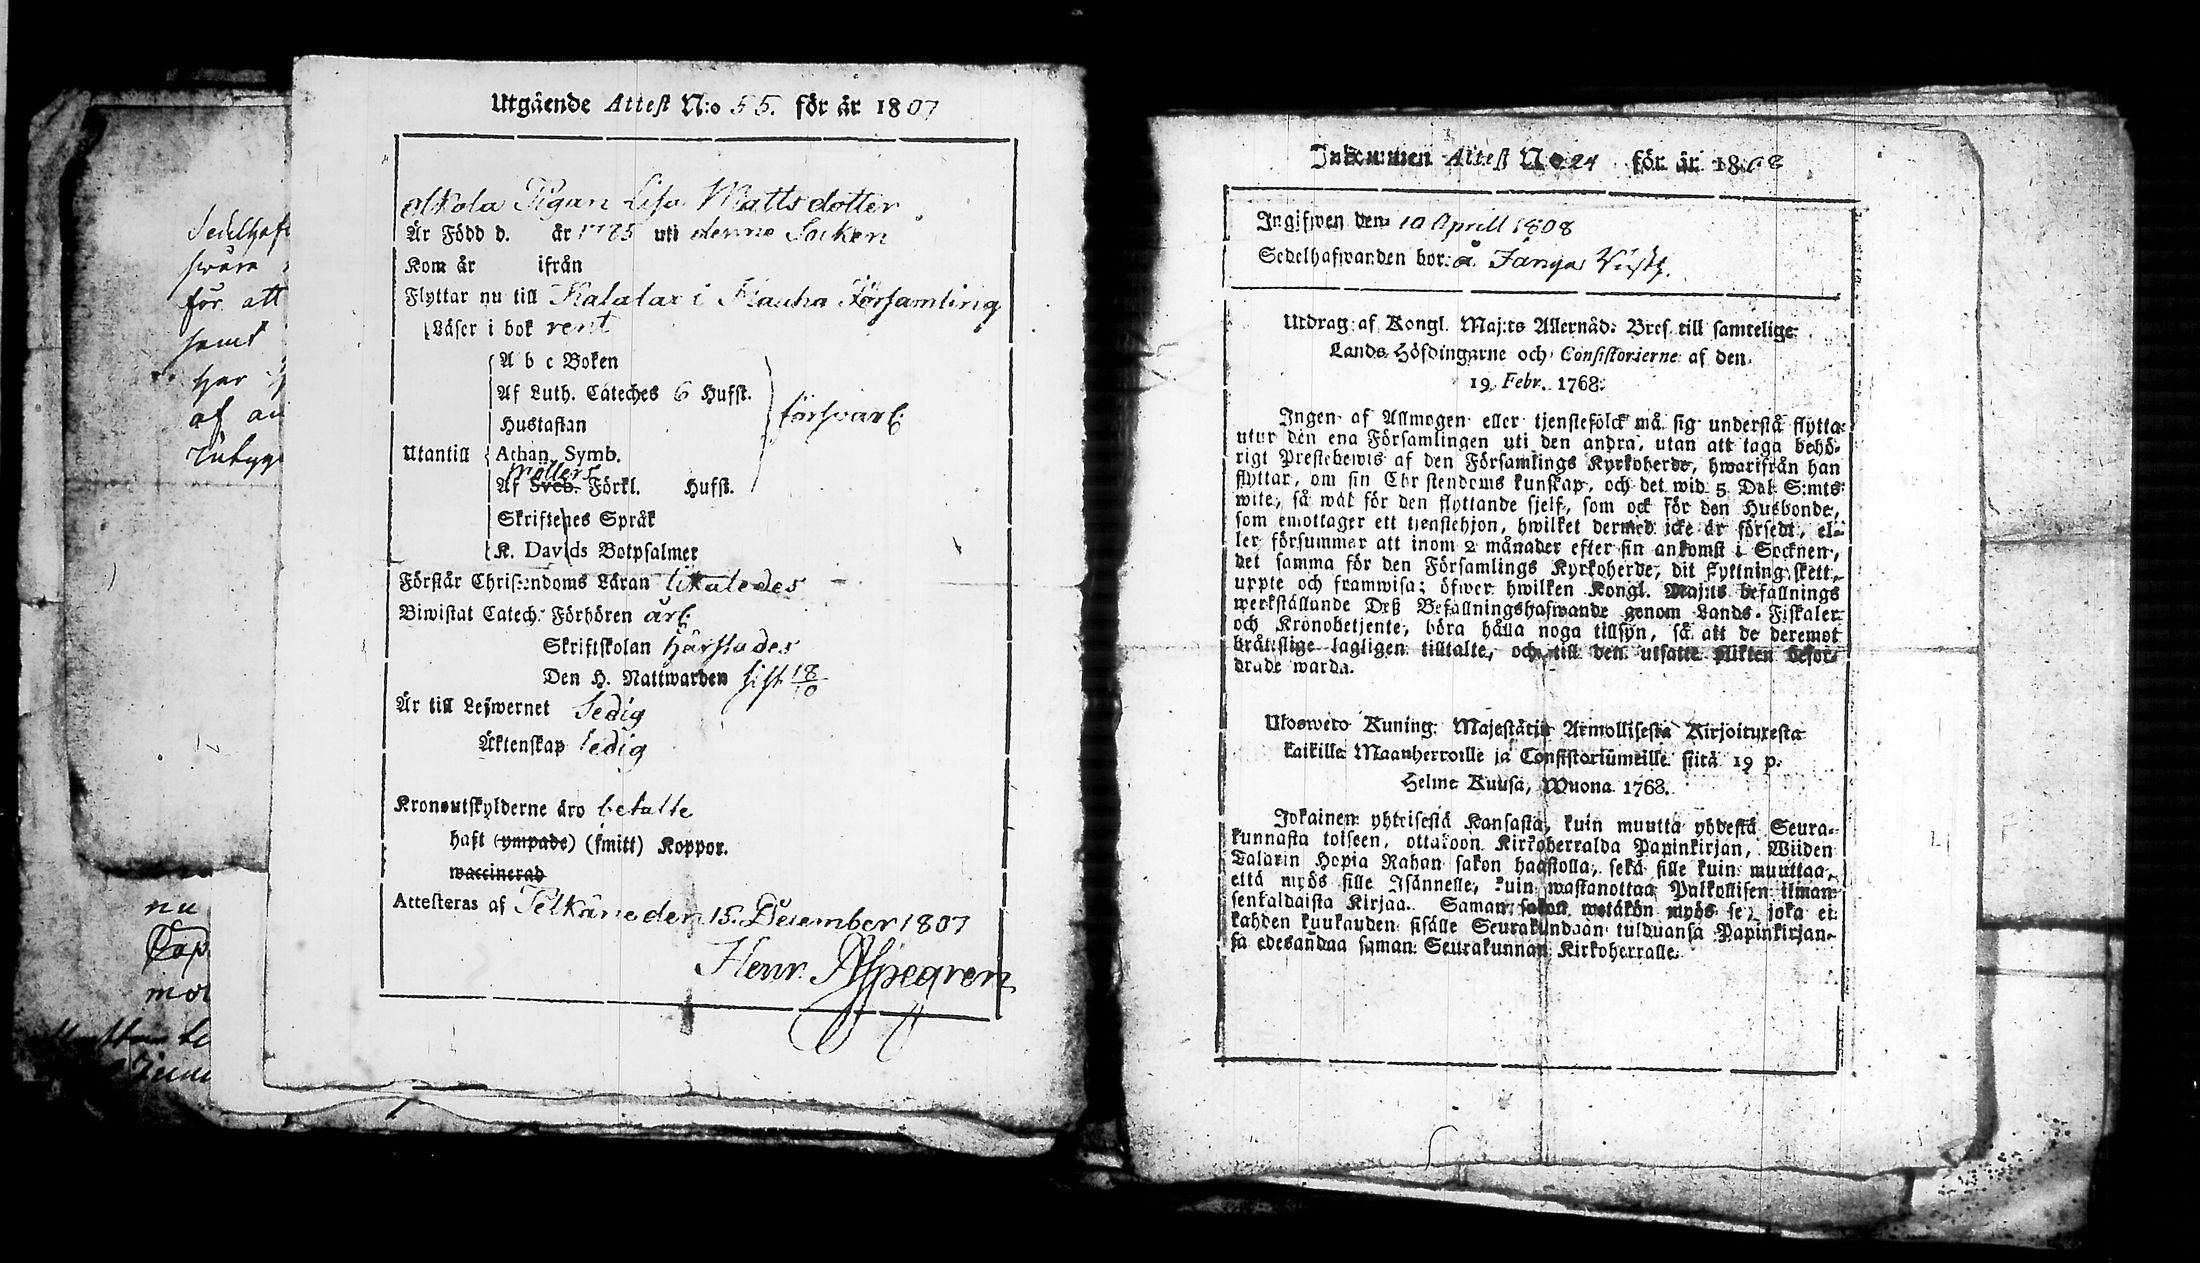 Utgående Attest N:o 55. för år 1807
Pigan Lisa Mattsdotter
Är Född d. år 1785 uti denne Socken
Kom år ifrån
Flyttar nu till Kalalax i Kauha Församling
Läser i bok rent
A b c Boken
Af Luth. Cateches 6 Hufst.
Hustaflan
försvarl:
Utantill
Athan. Symb.
Möllers
Af Sveb. Förkl. Hufst.
Skriftenes Språk
K. Davids Botpsalmer
Förstår Christendoms Läran likaledes
Biwistat Catech. Förhören ärl:
Skriftskolan
Den H. Nattwarden sist 18/10
Är till Lefwernet Sedig
Äktenskap ledig
Kronoutskylderne äro betalte
haft (ympade) (smitt) Koppor.
waccinerad
Attesteras af Pelkäne den 15. December 1807
Henr. Alpegren
Sedelhaf
för att
samt
har
af an
nu
Cap
Inkommen Attest No 24 för år 1808
Ingifwen den 10 Aprill 1808
Sedelhafwanden bor: å
Utdrag af Kongl. Maj:ts Allernåd: Bref till samtelige
Lands-Höfdingarne och Consistorierne af den
19. Febr. 1768.
Ingen af Allmogen eller tjenstefolck må sig understå flytta
utur den ena Församlingen uti den andra, utan att taga behö-
rigt Prestebewis af den Församlings Kyrkoherde, hwarifrån han
flyttar, om sin Christendoms kunskap, och det wid 5 Dal. S:mts
wite, så wäl för den flyttande sjelf, som ock för den Husbonde,
som emottager ett tjenstehjon, hwilket dermed icke är försedt, el-
ler försummar att inom 2 månader efter sin ankomst i Socknen,
det samma för den Församlings Kyrkoherde, dit flyttning skett,
uppte och framwisa; öfwer hwilken Kongl. Maj:ts befallnings
werkställande Deß Befallningshafwande genom Lands-Fiskaler
och Kronobetjente, böra hålla noga tillsyn, så att de deremot
bråtslige lagligen tilltalte, och till den utsatte plikten befor-
drade warda.
Uloswето Kuning. Majestätin Armollisesta Kirjoituxesta
kaikille Maanherroille ja Consistoriumeille siitä 19 p.
Helme Kuusa, Wuona 1768.
Jokainen yhteisestä Kansasta, kuin muutta yhdestä Seura-
kunnasta toiseen, ottakoon Kirkoherralda Papinkirjan, Wiiden
Talarin Hopia Rahan sakon haastolla, sekä sille kuin muuttaa,
että myös sille Isännelle, kuin wastanottaa Palkollisen ilman
senkaldaista Kirjaa. Saman sakon wetäkön myös se, joka ei
kahden kuukauden sisälle Seurakundaan tulduansa Papinkirjan-
sa edesandaa saman Seurakunnan Kirkoherralle.